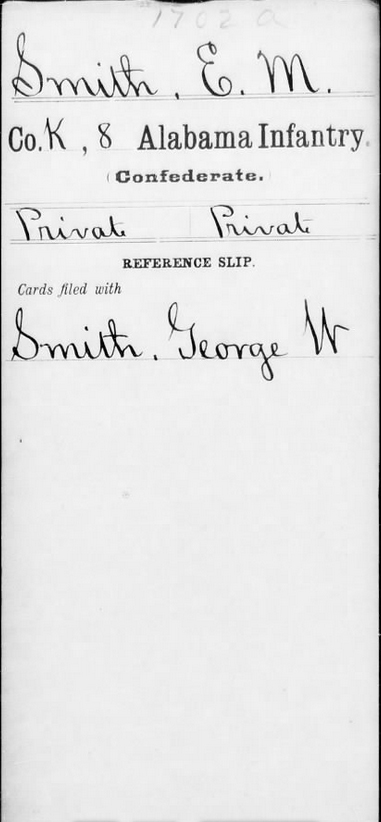 1702 a
Smith, E. M.
Co. K, 8 Alabama Infantry.
(Confederate.
Private Private
REFERENCE SLIP.
Cards filed with
Smith, George W